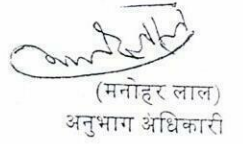 (मनोहर लाल)
अनुभाग अधिकारी